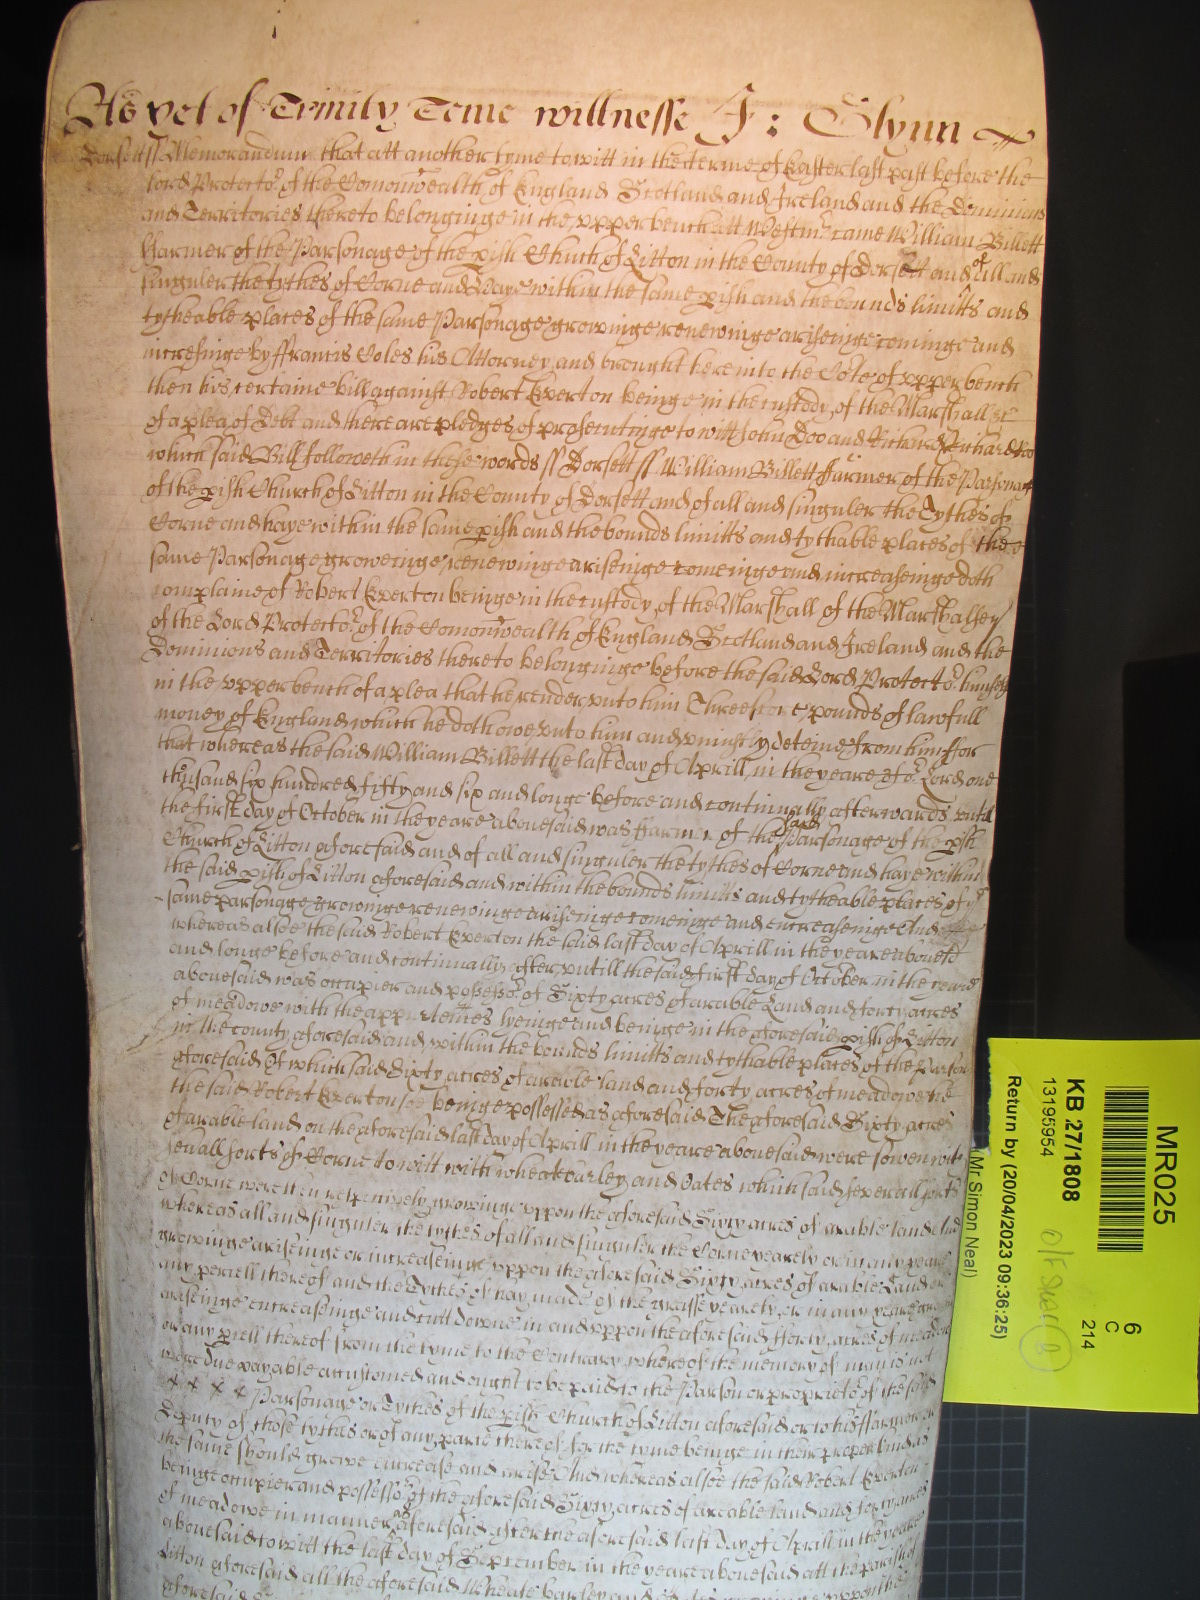 As yet of Trinity Terme wittnesse J: Glynn
Dorsett ss Memorandum that att another tyme to witt in the terme of Easter last past before the
Lord Protector of the Comonwealth of England Scotland and Ireland and the Dominions
and Territories thereto belonginge in the upper bench att Westmr came William Billett
ffarmer of the Parsonage of the pish Church of Litton in the County of Dorsett and of all and
singuler the tythes of Corne and Haye within the same pish and the bounds limitts and
tytheable places of the same Parsonage growinge renewinge ariseinge cominge and
incresinge by ffrancis Coles his Attorney and brought here into the Cote of upper bench
then his certaine bill against Robert Everton beinge in the custody of the Marshall &c
of a plea of Debt and there are pledges of prosecutinge to witt John Doo and Richard Roo
which said Bill followeth in these words ss Dorsett ss William Billett ffarmer of the Parsonage
of the pish Church of Litton in the County of Dorsett and of all and singuler the Tythes of
Corne and haye within the same pish and the bounds limitts and tythable places of the
same Parsonage groweinge renewinge ariseinge comeinge and increaseinge doth
complaine of Robert Everton beinge in the custody of the Marshall of the Marshalsey
of the Lord Protector of the Comonwealth of England Scotland and Ireland and the
Dominions and Territories thereto belonginge before the said Lord Protector himself
in the upper bench of a plea that he render unto him Threescore pounds of lawfull
money of England which he doth owe unto him and uniustly deteine from him ffor
that whereas the said William Billett the last day of Aprill in the yeare of or Lord one
thousand six hundred fifty and six and longe before and continually afterwards untill
the first day of October in the yeare abovesaid was ffarmer of the said Parsonage of the pish
Church of Litton aforesaid and of all and singuler the tythes of Corne and haye within
the said pish of Litton aforesaid and within the bounds limitts and tytheable places of ye
same parsonage growinge renewinge ariseinge comeinge and encreaseinge And
whereas alsoe the said Robert Everton the said last day of Aprill in the yeare abovesd
and longe before and continually after untill the said first day of October in the yeare
abovesaid was occupier and possessor of Sixty acres of arable Land and forty acres
of meadowe with the appurtenнces lyeinge and beinge in the aforesaid pish of Litton
in the county aforesaid and within the bounds limitts and tythable places of the Parson
aforesaid Of which said Sixty acres of arable land and forty acres of meadowe he
the said Robert Everton soe beinge possessed as aforesaid The aforesaid Sixty acres
of arable land on the aforesaid last day of Aprill in the yeare abovesaid were sowen with
severall sorts of Corne to witt with wheate barley and Oates which said severall sorts
of Corne were then respectively growinge uppon the aforesaid Sixty acres of arable land And
whereas all and singuler the tythes of all and singuler the Corne yearely or in any yeare
growinge ariseinge or increaseinge uppon the aforesaid Sixty acres of arable Land or
any percell thereof and the Tythes of hay made of the grasse yearely or in any yeare growinge
ariseinge encreaseinge and cutt downe in and uppon the aforesaid fforty acres of meadowe
or any pcell thereof from the tyme to the Contrary whereof the memory of man is not
were due payable accustomed and ought to be paid to the Parson or proprietor of the said
x x x x Parsonage or Tythes of the pish Church of Litton aforesaid or to his ffarmer or
Deputy of those tythes or of any parte thereof for the tyme beinge in their proper kind as
the same should growe encrease and arise And whereas alsoe the said Robert Everton
beinge occupier and possessor of the aforesaid Sixty acres of arable land and forty acres
of meadowe in manner as aforesaid after the aforesaid last day of Aprill in the yeare
abovesaid to witt the last day of September in the yeare abovesaid att the parish of
Litton aforesaid all the aforesaid Wheate barley and
MR025
6
C
214
KB 27/1808
13195954
Return by (20/04/2023 09:36:25)
(Mr Simon Neal)